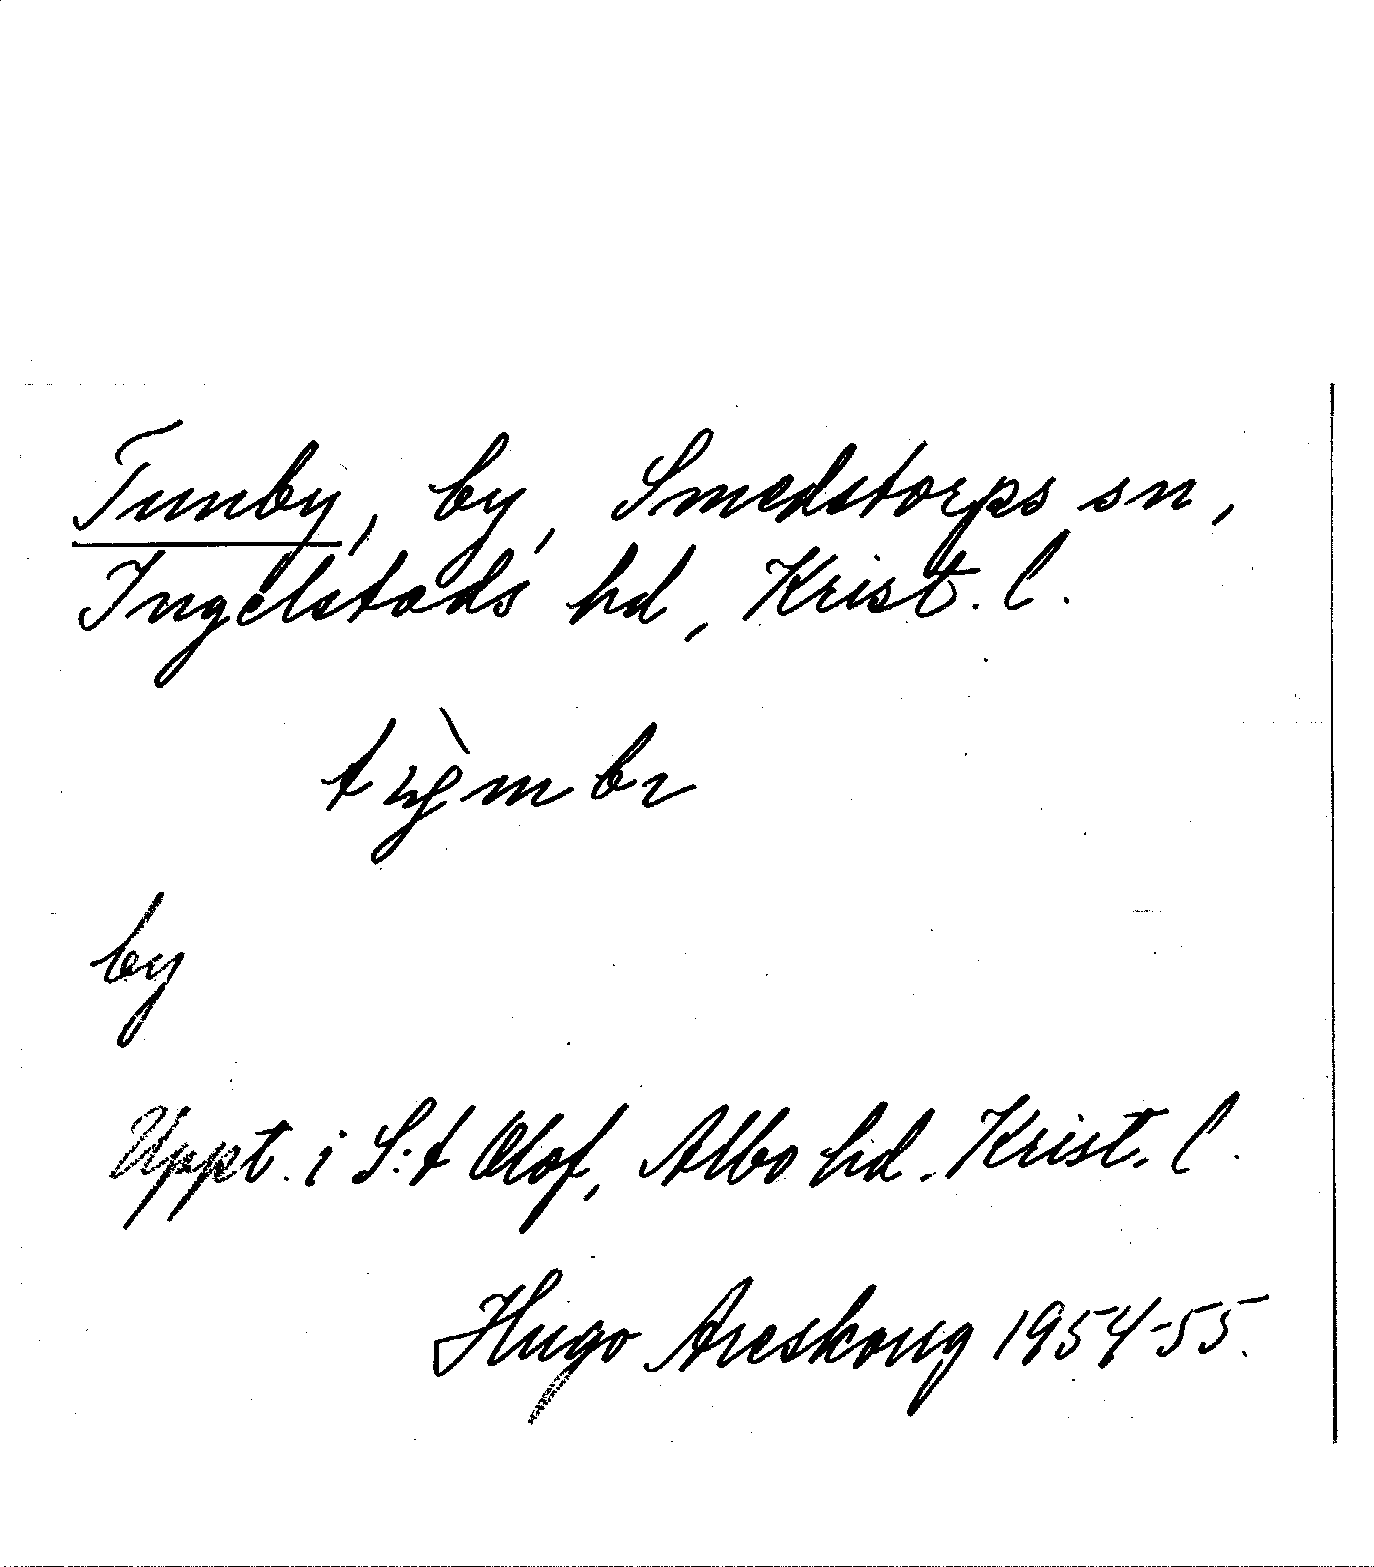 Tunby, by, Smedstorps sn,
Ingelstads hd, Krist. l.
by
Uppt. i S:t Olof, Albo hd. Krist. l.
Hugo Areskoug 1954-55.